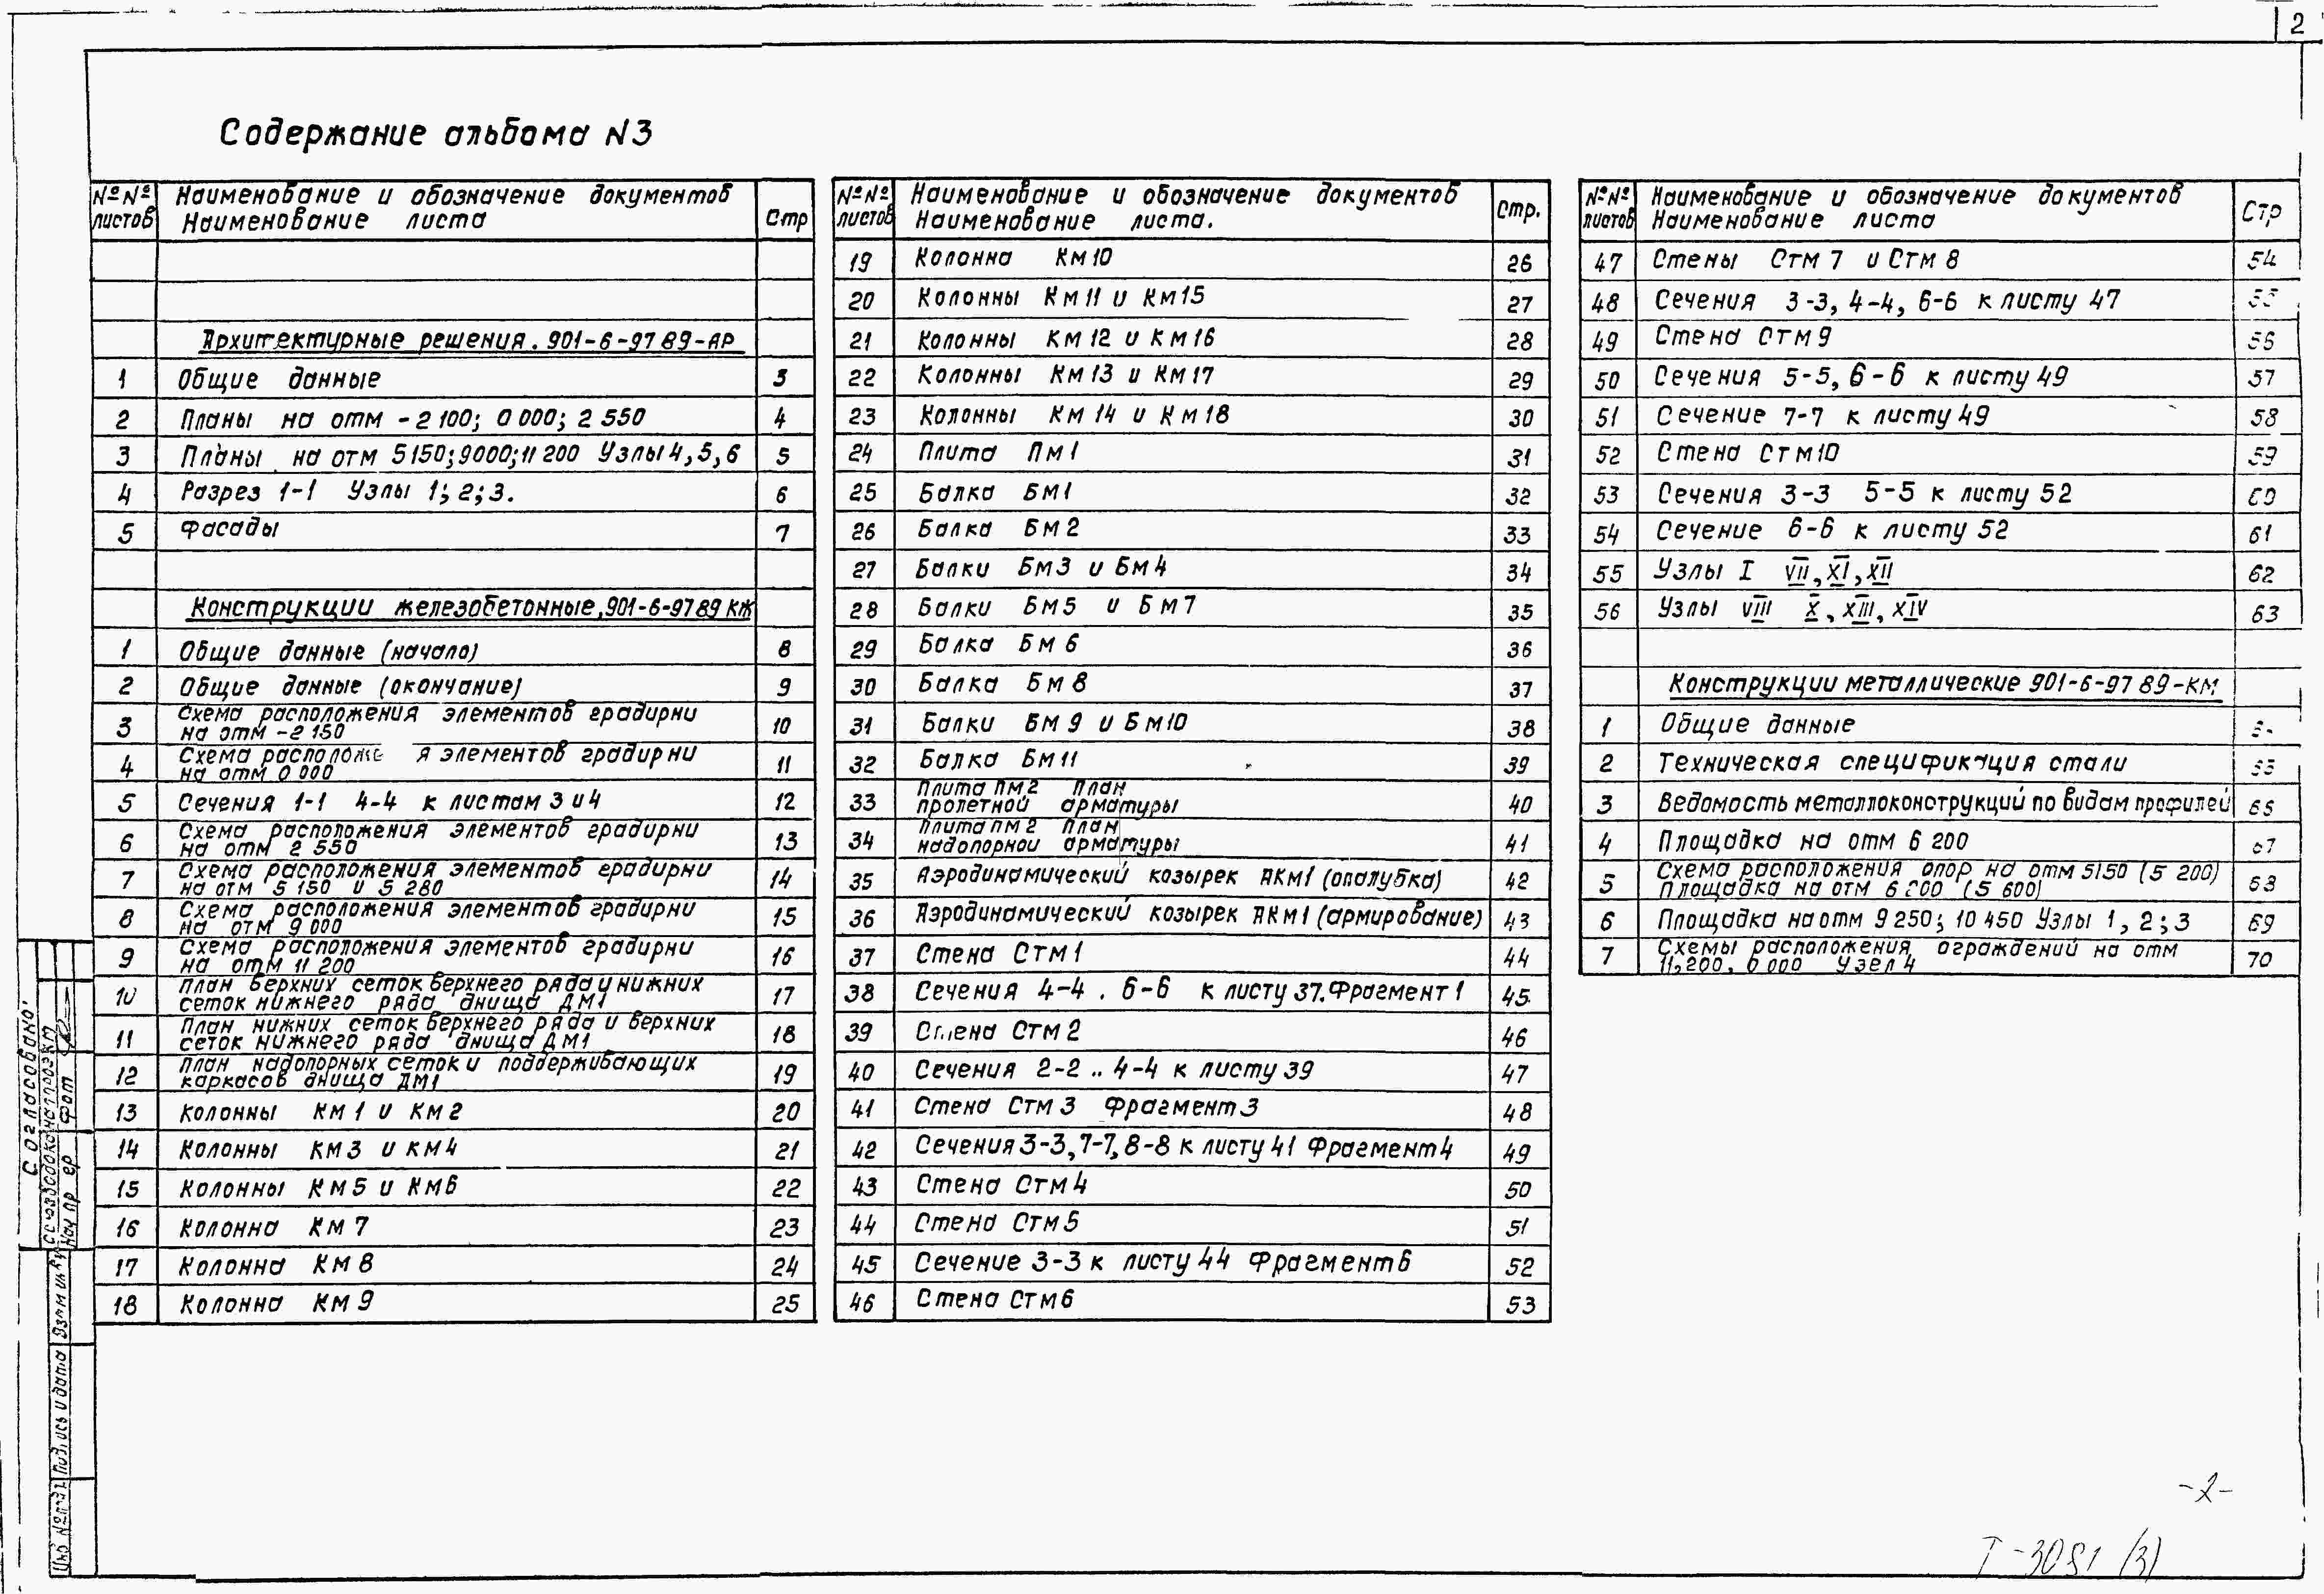 2
Содержание альбома N3
№№ листов Наименование и обозначение документов Наименование листа Стр
Архитектурные решения. 901-6-97 89-АР
1 Общие данные 3
2 Планы на отм -2 100; 0 000; 2 550 4
3 Планы на отм 5150; 9000; 11 200 Узлы 4, 5, 6 5
4 Разрез 1-1 Узлы 1; 2; 3. 6
5 Фасады 7
Конструкции железобетонные, 901-6-97 89 КЖ
1 Общие данные (начало) 8
2 Общие данные (окончание) 9
3 Схема расположения элементов градирни
на отм -2 150 10
4 Схема расположе я элементов градирни
на отм 0 000 11
5 Сечения 1-1 4-4 к листам 3 и 4 12
6 Схема расположения элементов градирни
на отм 2 550 13
7 Схема расположения элементов градирни
на отм 5 150 и 5 280 14
8 Схема расположения элементов градирни
на отм 9 000 15
9 Схема расположения элементов градирни
на отм 11 200 16
10 План верхних сеток верхнего ряда и нижних
сеток нижнего ряда днища ДМ1 17
11 План нижних сеток верхнего ряда и верхних
сеток нижнего ряда днища ДМ1 18
12 План надопорных сеток и поддерживающих
каркасов днища ДМ1 19
13 Колонны КМ 1 и КМ 2 20
14 Колонны КМ 3 и КМ 4 21
15 Колонны КМ 5 и КМ 6 22
16 Колонна КМ 7 23
17 Колонна КМ 8 24
18 Колонна КМ 9 25
№№ листов Наименование и обозначение документов Наименование листа. Стр.
19 Колонна КМ 10 26
20 Колонны КМ 11 и КМ 15 27
21 Колонны КМ 12 и КМ 16 28
22 Колонны КМ 13 и КМ 17 29
23 Колонны КМ 14 и КМ 18 30
24 Плита ПМ 1 31
25 Балка БМ1 32
26 Балка БМ 2 33
27 Балки БМ3 и БМ 4 34
28 Балки БМ5 и БМ 7 35
29 Балка БМ 6 36
30 Балка БМ 8 37
31 Балки БМ 9 и БМ10 38
32 Балка БМ 11 39
33 Плита ПМ 2 План
пролетной арматуры 40
34 Плита ПМ 2 План
надопорной арматуры 41
35 Аэродинамический козырек АКМ1 (опалубка) 42
36 Аэродинамический козырек АКМ1 (армирование) 43
37 Стена СТМ 1 44
38 Сечения 4-4 . 6-6 к листу 37. Фрагмент 1 45
39 Стена СТМ 2 46
40 Сечения 2-2 .. 4-4 к листу 39 47
41 Стена СТМ 3 Фрагмент 3 48
42 Сечения 3-3, 7-7, 8-8 к листу 41 Фрагмент 4 49
43 Стена СТМ 4 50
44 Стена СТМ 5 51
45 Сечение 3-3 к листу 44 Фрагмент 6 52
46 Стена СТМ 6 53
№№ листов Наименование и обозначение документов Наименование листа Стр
47 Стены СТМ 7 и СТМ 8 54
48 Сечения 3-3, 4-4, 6-6 к листу 47
49 Стена СТМ 9 56
50 Сечения 5-5, 6-6 к листу 49 57
51 Сечение 7-7 к листу 49 58
52 Стена СТМ10 59
53 Сечения 3-3 5-5 к листу 52
54 Сечение 6-6 к листу 52 61
55 Узлы I VII, XI, XII 62
56 Узлы VIII X, XIII, XIV 63
Конструкции металлические 901-6-97 89-КМ
1 Общие данные
2 Техническая спецификация стали
3 Ведомость металлоконструкций по видам профилей
4 Площадка на отм 6 200
5 Схема расположения опор на отм 5150 (5 200)
Площадка на отм (5 600)
6 Площадка на отм 9 250; 10 450 Узлы 1, 2; 3 69
7 Схемы расположения ограждений на отм
11, 200, 0 000 Узел 4 70
Согласовано
Подпись и дата
-2-
Т-3081 (3)